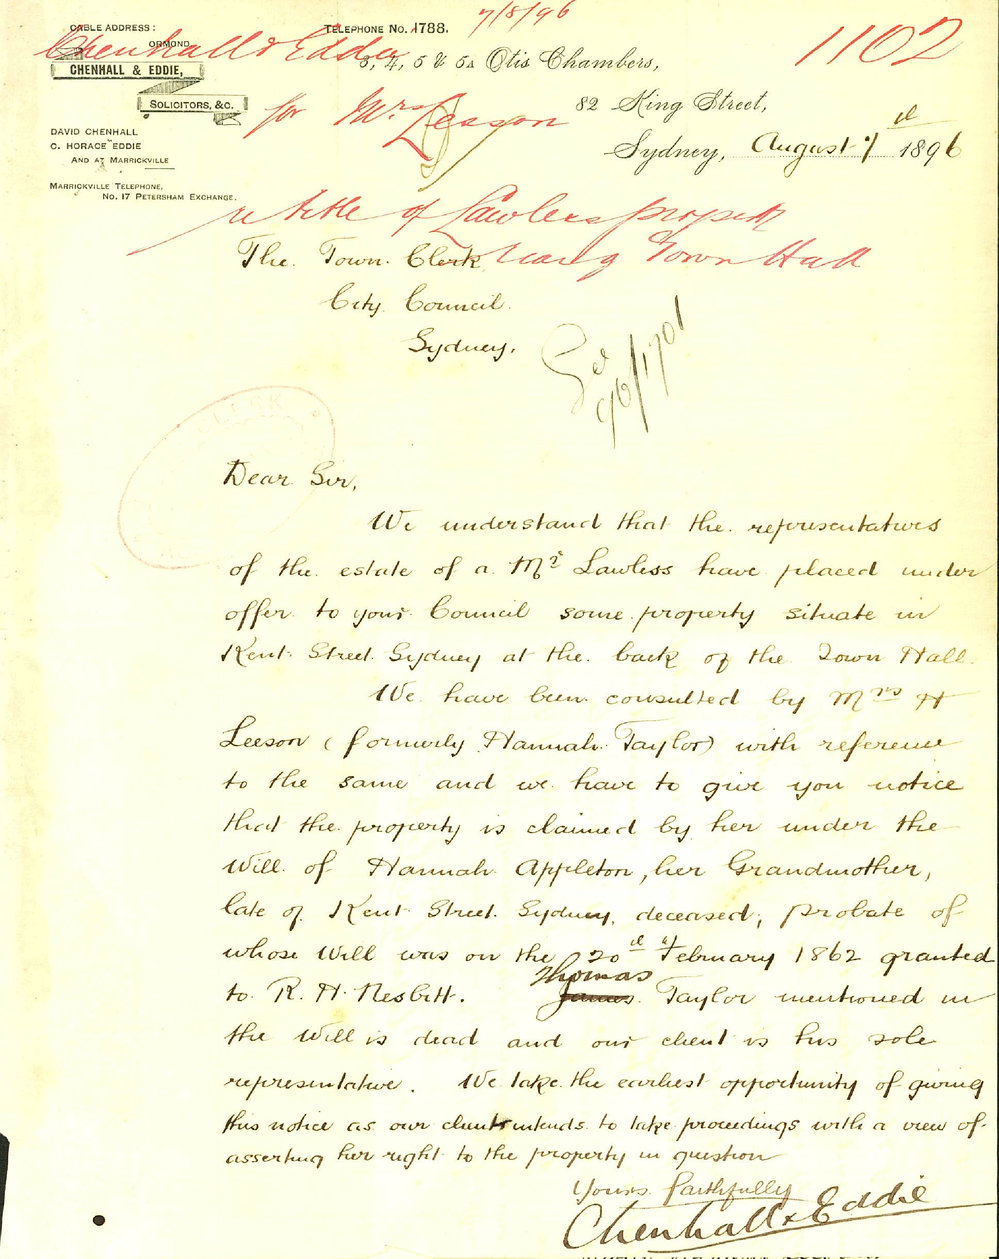 7/8/96
CABLE ADDRESS:
ORMOND.
TELEPHONE No. 1788.
1102
Chenhall & Eddie
CHENHALL & EDDIE,
SOLICITORS, &C.
3, 4, 5 & 5A Otis Chambers,
for Mrs Leeson
82 King Street,
Sydney, August 7th 1896
DAVID CHENHALL
C. HORACE EDDIE
AND AT MARRICKVILLE
MARRICKVILLE TELEPHONE,
No. 17 PETERSHAM EXCHANGE.
re title of Lawless property
The Town Clerk
near Town Hall
City Council
Sydney.
96/1701
Dear Sir,
We understand that the representatives
of the estate of a Mr Lawless have placed under
offer to your Council some property situate in
Kent Street Sydney at the back of the Town Hall.
We have been consulted by Mrs H
Leeson (formerly Hannah Taylor) with reference
to the same and we have to give you notice
that the property is claimed by her under the
Will of Hannah Appleton, her Grandmother,
late of Kent Street Sydney, deceased, probate of
whose Will was on the 20th February 1862 granted
to R. H. Nesbitt. Thomas
James Taylor mentioned in
the Will is dead and our client is his sole
representative. We take the earliest opportunity of giving
this notice as our client intends to take proceedings with a view of
asserting her right to the property in question
Yours faithfully
Chenhall & Eddie